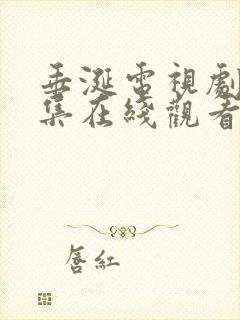 垂涎電視劇
集在綫觀看
唇紅